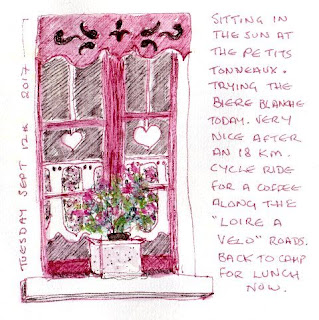 TUESDAY SEPT 12th 2017
SITTING IN
THE SUN AT
THE PETITS
TONNEAUX.
TRYING THE
BIERE BLANCHE
TODAY. VERY
NICE AFTER
AN 18 KM.
CYCLE RIDE
FOR A COFFEE
ALONG THE
"LOIRE A
VELO" ROADS.
BACK TO CAMP
FOR LUNCH
NOW.